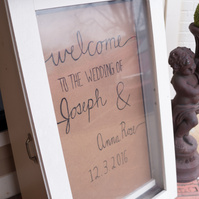 welcome
TO THE WEDDING OF
Joseph &
Anna Rose
12.3.2016